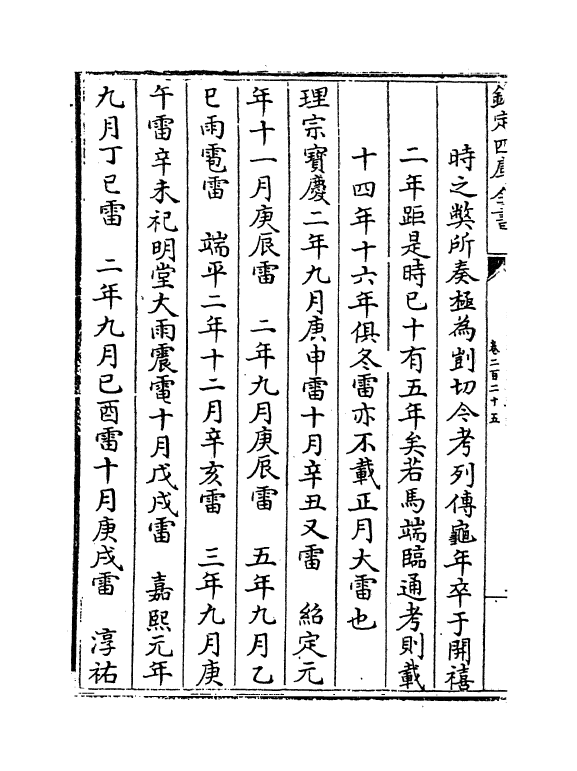 欽定四庫全書
卷二百二十五
時之獘所奏極為剴切今考列傳龜年卒于開禧
二年距是時已十有五年矣若馬端臨通考則載
十四年十六年俱冬雷亦不載正月大雷也
理宗寶慶二年九月庚申雷十月辛丑又雷　紹定元
年十一月庚辰雷　二年九月庚辰雷　五年九月乙
巳雨雹雷　端平二年十二月辛亥雷　三年九月庚
午雷辛未祀明堂大雨震電十月戊戌雷　嘉熙元年
九月丁巳雷　二年九月己酉雷十月庚戌雷　淳祐